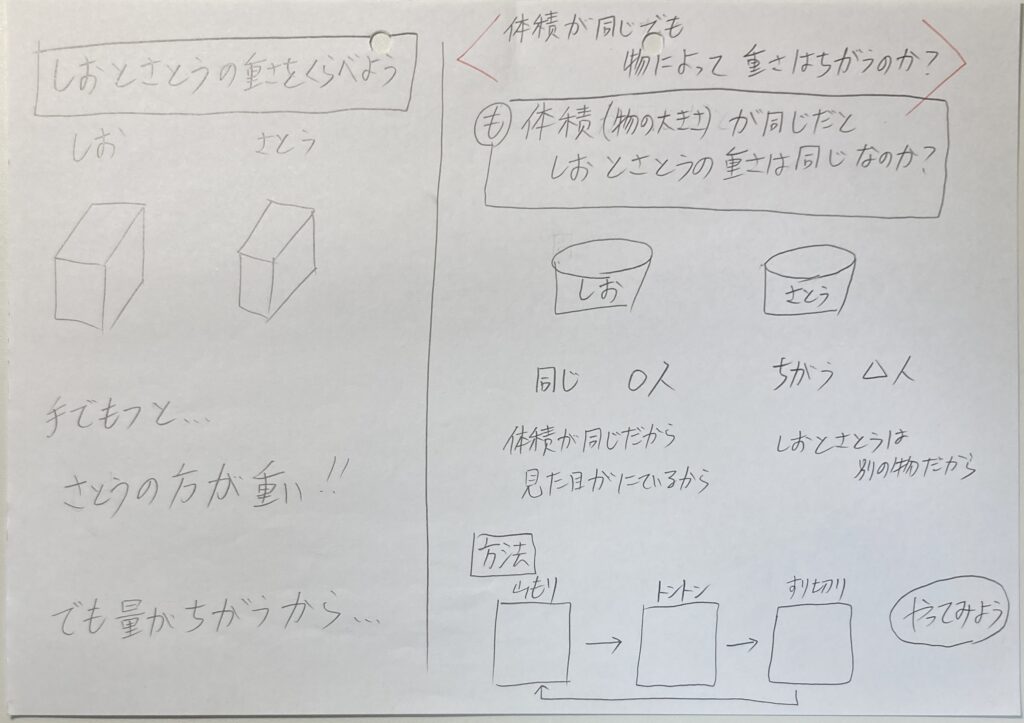 しおとさとうの重さをくらべよう
しお
さとう
手でもつと…
さとうの方が重い!!
でも量がちがうから…
体積が同じでも
物によって重さはちがうのか?
も 体積(物の大きさ)が同じだと
しおとさとうの重さは同じなのか?
しお
さとう
同じ ○人
ちがう △人
体積が同じだから
見た目がにているから
しおとさとうは
別の物だから
方法
山もり
トントン
すり切り
やってみよう